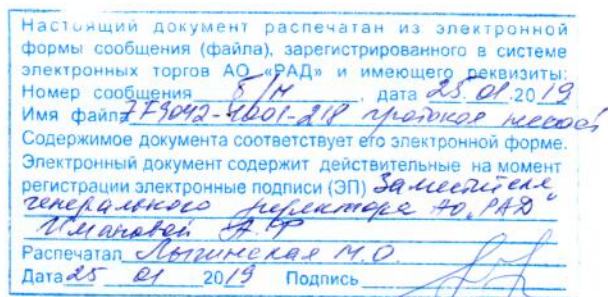 Настоящий документ распечатан из электронной
формы сообщения (файла), зарегистрированного в системе
электронных торгов АО «РАД» и имеющего реквизиты:
Номер сообщения б/н, дата 25.01.2019
Имя файла протокол
Содержимое документа соответствует его электронной форме.
Электронный документ содержит действительные на момент
регистрации электронные подписи (ЭП) Заместителя
генерального директора АО "РАД
Имановой
Распечатал М.О.
Дата 25 01 2019 Подпись